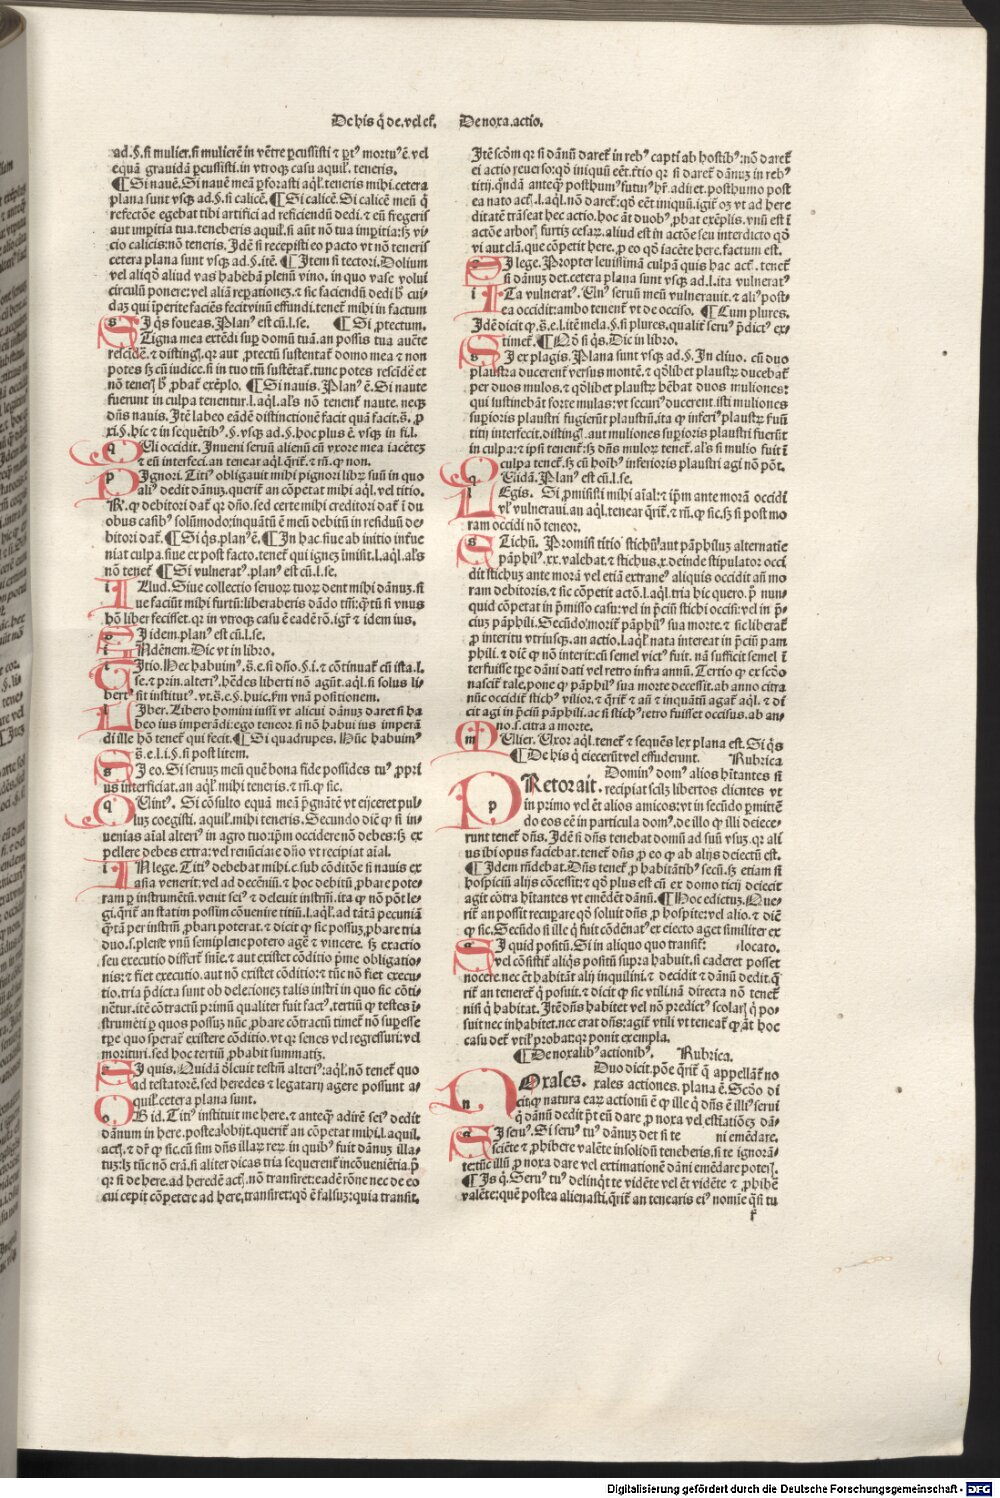 De his q̃ de. vel ef. De noxa. actio.
ad. §. si mulier. si mulierē in vētre ꝑcussisti ⁊ ꝑtꝰ mortuꝰ ē. vel
equā grauidā ꝑcussisti. in vtroqꝫ casu aquil. teneris.
¶ Si nauē. Si nauē meā ꝑforasti aql. teneris mihi. cetera
plana sunt vsqꝫ ad. §. si calicē. ¶ Si calicē. Si calicē meū q̇
refectōe egebat tibi artifici ad reficiendū dedi. ⁊ eū fregeris
aut imꝑitia tua. teneberis aquil. si aūt nō tua imꝑitia: sꝫ vi-
cio calicis: nō teneris. Idē si recepisti eo pacto vt nō teneris
cetera plana sunt vsqꝫ ad. §. itē. ¶ Item si tectori. Dolium
vel aliqd̕ aliud vas habebā plenū vino. in quo vasc volui
circulū ponere: vel aliā reꝑationeꝫ. ⁊ sic faciendū dedi cui-
daꝫ qui īperite faciēs fecit vinū effundi. tenet̄ mihi in factum
SI q̇s foueas. Planꝰ est cū. l. se. ¶ Si ꝓtectum.
Tigna mea extēdi suꝑ domū tuā. an possis tua aucte
rescidē̄. ⁊ disting̃. qꝛ aut ꝓtectū sustentat̄ domo mea ⁊ non
potes sꝫ cū iudice. si in tuo tm̄ sustētat̄. tunc potes rescidē et
nō tener̄ ꝓbat̄ exēplo. ¶ Si nauis. Planꝰ ē. Si naute
fuerunt in culpa tenentur. l. aql. als nō tenent̄ naute. neqꝫ
dn̄s nauis. Itē labeo eādē distinctionē facit quā facit. s̄. ꝓ
xi. §. hic ⁊ in sequētibꝰ. §. vsqꝫ ad. §. hoc plus ē. vsqꝫ in fi. l.
QUi occidit. Inueni seruū alienū cū vxore mea iacēteꝫ
⁊ eū interfeci. an tenear aql. q̄rit̄. ⁊ rn̄. ꝙ non.
PIgnori. Titiꝰ obligauit mihi pignori libꝝ suū in quo
aliꝰ dedit dānuꝫ. querit̄ an cōpetat mihi aql. vel titio.
Rn̄. ꝙ debitori dat̄ qꝛ dn̄o. sed certe mihi creditori dat̄ ī du
obus casibꝰ solūmodo: inquātū ē meū debitū in residuū de-
bitori dat̄. ¶ Si q̇s. planꝰ ē. ¶ In hac. siue ab initio interue
niat culpa. siue ex post facto. tenet̄ qui igneꝫ imisit. l. aql. als
nō tenet̄ ¶ Si vulneratꝰ. planꝰ est cū. l. se.
ILlud. Siue collectio seruoꝝ tuoꝝ dent mihi dānuꝫ. si
ue faciūt mihi furtū: liberaberis dādo tm̄: q̄tū si vnus
hō liber fecisset. qꝛ in vtroqꝫ casu ē eadē rō. igr̄ ⁊ idem ius.
SI idem. planꝰ est cū. l. se.
INdēnem. Dic vt in libro.
ITio. Nec habuimꝰ. s̄. e. si dn̄o. §. i. ⁊ cōtinuat̄ cū ista. l.
se. ⁊ prin. alteriꝰ. hēdes liberti nō agūt. aql. si solus li-
bertꝰ sit institutꝰ. vt. s̄. e. §. huic. ẜm vnā positionem.
LIber. Libero homini iussi vt alicui dānuꝫ daret si ha
beo ius imperādi. ego teneor si nō habui ius imperā
di ille hō tenet̄ qui fecit. ¶ Si quadrupes. Nūc habuimꝰ
s̄. e. l. i. §. si post litem.
SI eo. Si seruuꝫ meū quē bona fide possides tuꝰ ꝓpri
us interficiat. an aql. mihi teneris. ⁊ rn̄. ꝙ sic.
QUintꝰ. Si cōsulto equā meā p̄gnātē vt eijceret pul-
luꝫ coegisti. aquil. mihi teneris. Secundo diē ꝙ si in-
uenias aīal alteriꝰ in agro tuo: ip̄m occidere nō debes: sꝫ ex
pellere debes extra: vel renūciare dn̄o vt recipiat aīal.
IN lege. Titiꝰ debebat mihi. c. sub cōditōe si nauis ex
asia venerit: vel ad decēniū. ⁊ hoc debitū ꝓbare pote-
ram ꝑ instrumētū. venit seiꝰ ⁊ deleuit instrm̄. ita ꝙ nō pōt le-
gi. q̄rit̄ an statim possim cōuenire titiū. l. aql. ad tātā pecuniā
q̄tā per instrm̄ ꝓbari poterat. ⁊ dicit ꝙ sic possuꝫ. ꝓbare tria
duo. s. plene vnū semiplene potero agē ⁊ vincere. sꝫ exactio
seu executio differt̄ sn̄ie. ⁊ aut existet cōditio p̄me obligatio-
nis: ⁊ fiet executio. aut nō existet cōditio: ⁊ tūc nō fiet execu-
tio. tria p̄dicta sunt ob deletioneꝫ talis instri in quo sic cōti-
nētur. itē cōtractū primū qualiter fuit factꝰ. tertiū ꝙ testes ī-
strumēti ꝑ quos possuꝫ nūc ꝓbare cōtractū timet̄ nō suꝑesse
tp̄e quo sperat̄ existere cōditio. vt qꝛ senes vel regressuri: vel
morituri. sed hoc tertiū ꝓbabit summatiꝫ.
SI quis. Quidā deleuit testm̄ alteriꝰ: aql. nō tenet̄ quo
ad testatorē. sed heredes ⁊ legatarij agere possunt a-
quil. cetera plana sunt.
OB id. Titiꝰ instituit me here. ⁊ anteq̄ adirē seiꝰ dedit
dānum in here. postea obijt. querit̄ an cōpetat mihi. l. aquil.
act̄. ⁊ dr̄ ꝙ sic. cū sim dn̄s illaꝝ reꝝ. in quibꝰ fuit dānuꝫ illa-
tuꝫ: lꝫ tūc nō erā. si aliter dicas tria sequerent̄ incōueniētia. p̄
qꝛ si de here. ad heredē act̄. nō transiret: eadē rōne nec de eo
cui cepit cōpetere ad here. transiret: qd̕ ē falsuꝫ: quia transit.
Itē scd̕m qꝛ si dānū daret̄ in rebꝰ capti ab hostibꝰ: nō daret̄
ei actio reuerso: qd̕ iniquū eēt. tertio qꝛ si daret̄ dānuꝫ in rebꝰ
titij. qn̄dā anteq̄ posthumꝰ futurꝰ hr̄. adiret. posthumo post
ea nato act̄. l. aql. nō daret̄: qd̕ eēt iniquū. igit̄ oꝫ vt ad here
ditatē trāseat hec actio. hoc aūt duobꝰ ꝓbat exēplis. vnū est ī
actōe arboꝝ furtiꝫ cesaꝝ. aliud est in actōe seu interdicto qd̕
vi aut clā. que cōpetit here. ꝓ eo qd̕ iacēte here. factum est.
SI lege. Propter leuissimā culpā quis hac act̄. tenet̄
si dānuꝫ det. cetera plana sunt vsqꝫ ad. l. ita vulneratꝰ
ITa vulneratꝰ. Unꝰ seruū meū vulnerauit. ⁊ aliꝰ post-
ea occidit: ambo tenent̄ vt de occiso. ¶ Cum plures.
Idē dicit ꝙ. s̄. e. l. itē mela. §. si plures. qualit̄ seruꝰ p̄dictꝰ ex-
timet̄. ¶ Nō si q̇s. Dic in libro.
SI ex plagis. Plana sunt vsqꝫ ad. §. In cliuo. cū duo
plaustra ducerent̄ versus montē. ⁊ qd̕libet plaustꝝ ducebat̄
per duos mulos. ⁊ qd̕libet plaustꝝ hēbat duos muliones:
qui sustinebāt forte mulas: vt securꝰ ducerent. isti muliones
suꝑioris plaustri fugierūt plaustrū. ita ꝙ inferiꝰ plaustꝝ fuū
titij interfecit. disting̃. aut muliones suꝑioris plaustri fuerūt
in culpa: ⁊ ipsi tenent̄: sꝫ dn̄s muloꝝ tenet̄. als si mulio fuit ī
culpa tenet̄. sꝫ cū hoībꝰ inferioris plaustri agi nō pōt.
QUidā. Planꝰ est cū. l. se.
LEgis. Si ꝓmisisti mihi aīal: ⁊ ip̄m ante morā occidi
vl̕ vulneraui. an aql. tenear q̄rit̄. ⁊ rn̄. ꝙ sic. sꝫ si post mo
ram occidi nō teneor.
STichū. Promisi titio stichū aut pāphiluꝫ alternatīe
pāphilꝰ. xx. valebat. ⁊ stichus. x. deinde stipulator occi
dit stichuꝫ ante morā vel etiā extraneꝰ aliquis occidit aūt mo
ram debitoris. ⁊ sic cōpetit actō. l. aql. tria hic quero. p̄ nun-
quid cōpetat in p̄misso casu: vel in p̄ciū stichi occisi: vel in p̄-
ciuꝫ pāphili. Secūdo: morit̄ pāphilꝰ sua morte. ⁊ sic liberat̄
ꝓ interitu vtriusqꝫ. an actio. l. aql. nata intereat in p̄ciū pam
phili. ⁊ diē ꝙ nō interit: cū semel victꝰ fuit. nā sufficit semel ī
terfuisse tp̄e dāni dati vel retro infra annū. Tertio ꝙ ex scd̕o
nascit̄ tale. pone ꝙ pāphilꝰ sua morte decessit. ab anno citra
nūc occidit̄ stichꝰ vilior. ⁊ q̄rit̄ ⁊ aū ⁊ inquātū agat̄ aql. ⁊ di
cit agi in p̄ciū pāphili. ac si stichꝰ retro fuisset occisus. ab an-
no. s. citra a morte.
MUlier. Uxor aql. tenet̄ ⁊ sequēs lex plana est. Si q̇s
¶ De his q̇ eiecerūt vel effuderunt. Rubrica.
PRetor ait. Dominꝰ domꝰ alios hītantes si
recipiat scilꝫ libertos clientes vt
in primo vel ēt alios amicos: vt in secūdo ꝑmittē
do eos eē in particula domꝰ. de illo ꝙ illi deiece-
runt tenet̄ dn̄s. Idē si dn̄s tenebat domū ad suū vsuꝫ. qꝛ ali
us ibi opus faciebat. tenet̄ dn̄s ꝓ eo ꝙ ab alijs deiectū est.
¶ Idem rn̄debat. Dn̄s tenet̄ ꝓ habitātibꝰ secū. sꝫ etiam si
hospiciū alijs cōcessit: ⁊ qd̕ plus est cū ex domo ticij deiecit
agit cōtra hītantes vt emēdēt dānū. ¶ Hoc edictuꝫ. Que-
rit̄ an possit recuꝑare qd̕ soluit dn̄s ꝓ hospite: vel alio. ⁊ diē
ꝙ sic. Secūdo si ille q̇ fuit cōdēnatꝰ ex eiecto aget similiter ex
SI quid positū. Si in aliquo quo transit̄: locato.
vel cōsistit̄ aliq̇s positū supra habuit. si caderet posset
nocere. nec ēt habitāt alij inquilini. ⁊ decidit ⁊ dānū dedit. q̄
rit̄ an teneret̄ q̇ posuit. ⁊ dicit ꝙ sic vtili. nā directa nō tenet̄
nisi q̇ habitat. Itē dn̄s habitet vel nō p̄dictꝰ scolaris q̇ po-
suit nec inhabitet. nec erat dn̄s: agit̄ vtili vt teneat̄ ꝙ aūt hoc
casu det̄ vtil̕ probat̄: qꝛ ponit exempla.
¶ De noxalibꝰ actionibꝰ. Rubrica.
NOxales. Duo dicit. pōe q̄rit̄ q̄ appellāt̄ no
xales actiones. plana ē. Scd̕o di
cit. ꝙ natura eaꝝ actionū ē ꝙ ille q̇ dn̄s ē illiꝰ serui
q̇ dānū dedit pt̄ eū dare ꝓ noxa vel estīatiōeꝫ dā-
SI seruꝰ. Si seruꝰ tuꝰ dānuꝫ det si te ni emēdare.
sciēte ⁊ ꝓhibere valēte insolidū teneberis. si te ignorā-
te: tūc illū ꝓ noxa dare vel extimationē dāni emēdare poteris.
¶ Is q̇. Seruꝰ tuꝰ delinq̇t te vidēte vel ēt vidēte ⁊ ꝓhibē
valēte: quē postea alienasti. q̄rit̄ an tenearis eiꝰ nomīe qn̄ tu
r
Digitalisierung gefördert durch die Deutsche Forschungsgemeinschaft - DFG